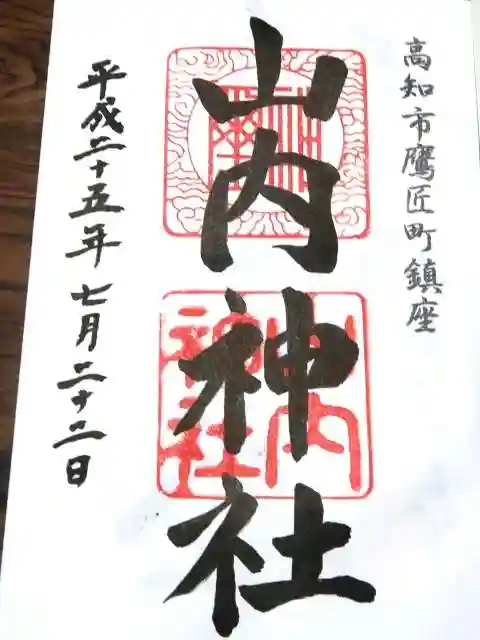 高知市鷹匠町鎮座
山内神社
山内
神社
平成二十五年七月二十二日